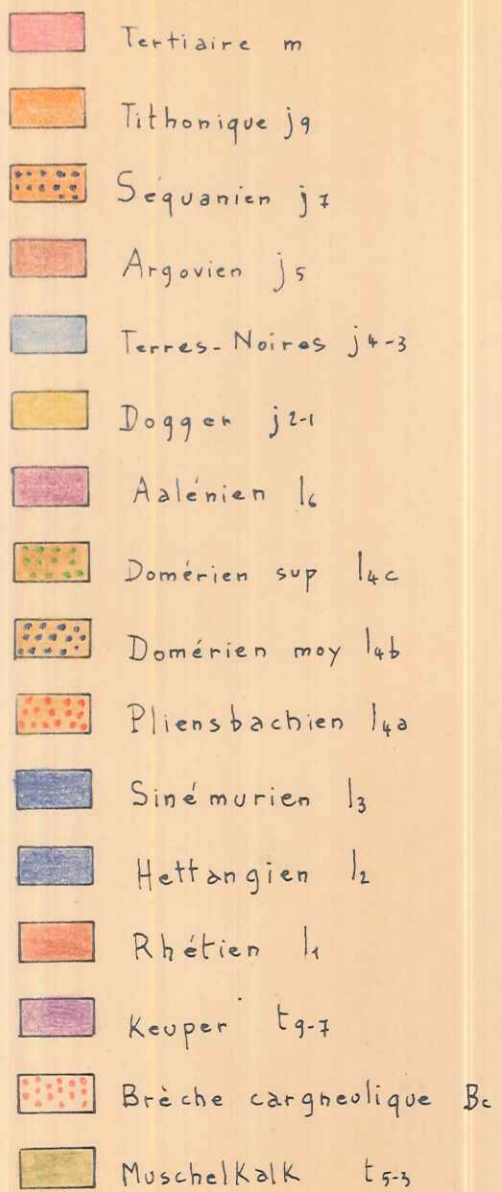 Tertiaire m
Tithonique j9
Séquanien j7
Argovien j5
Terres-Noires j4-3
Dogger j2-1
Aalénien l6
Domérien sup l4c
Domérien moy l4b
Pliensbachien l4a
Sinémurien l3
Hettangien l2
Rhétien l1
Keuper t9-7
Brèche cargneulique Bc
Muschelkalk t5-3